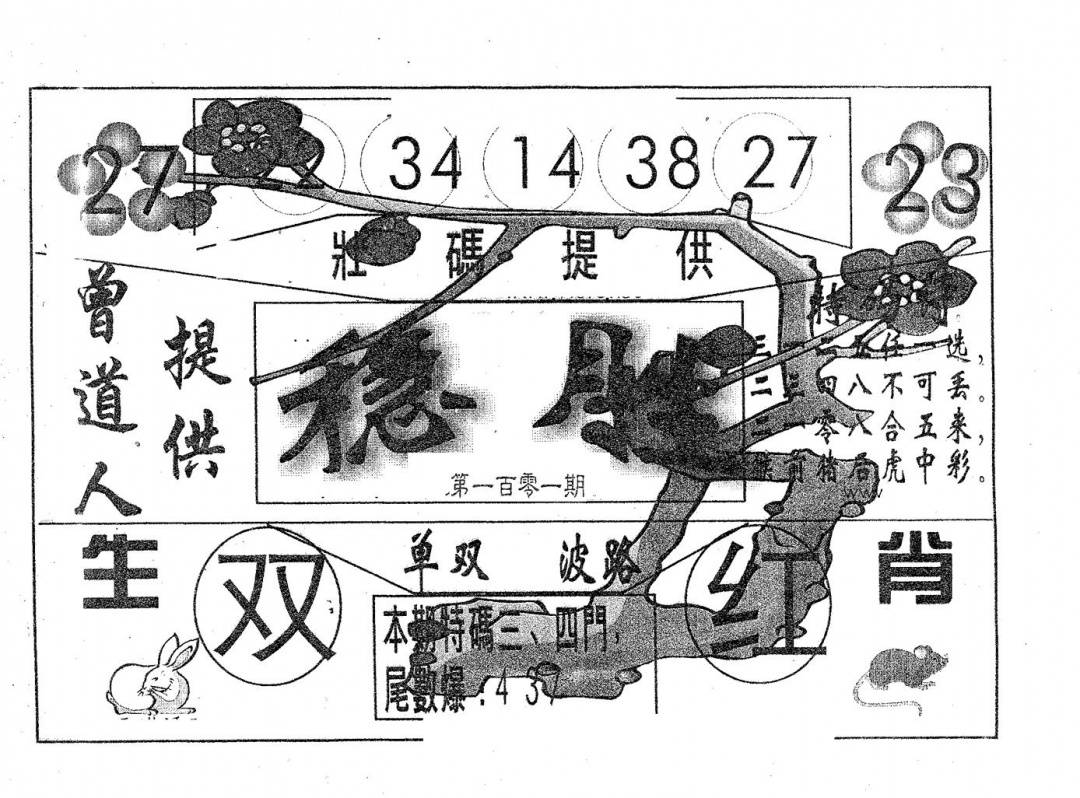 27 34 14 38 27 23
壯碼提供
曾道人
提供
穩勝
第一百零一期
特
五任一选，
二三四八不可丢。
零八合五来，
前猪后虎中彩。
www
生
双
单双 波路
红
肖
本期特碼三、四門，
尾數爆：4 3